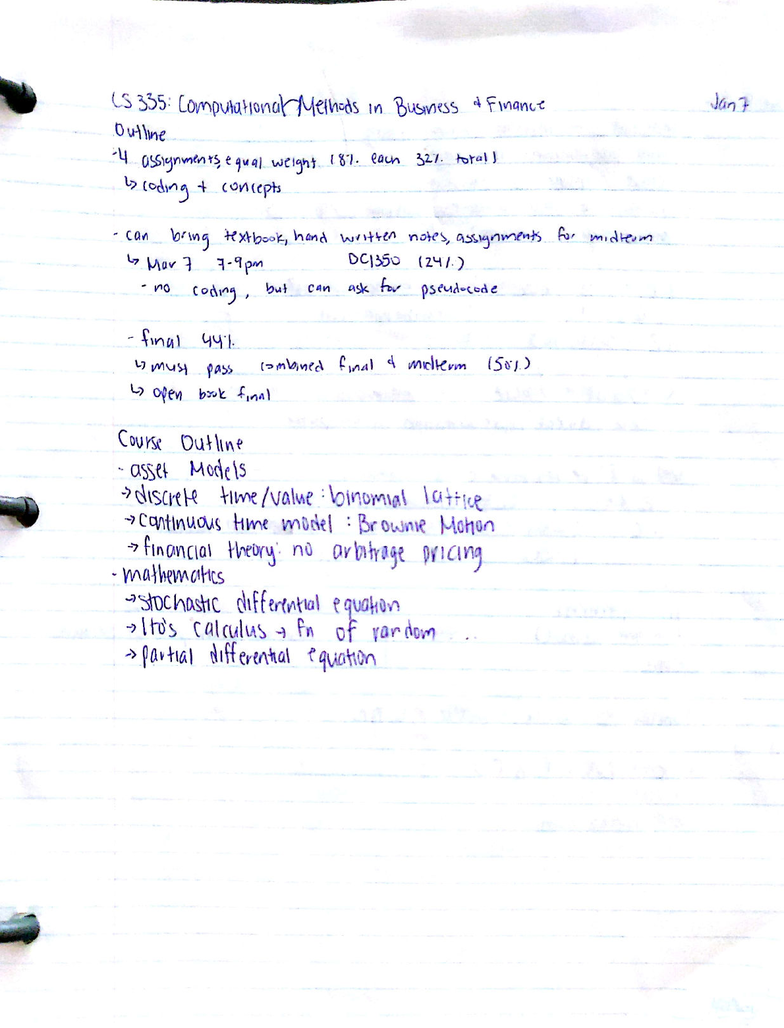 CS 335: Computational Methods in Business & Finance Jan 7
Outline
- 4 assignments, equal weight (8% each 32% total)
↳ coding + concepts
- can bring textbook, hand written notes, assignments for midterm
↳ Mar 7 7-9pm DC1350 (24%)
- no coding, but can ask for pseudocode
- final 44%
↳ must pass combined final & midterm (50%)
↳ open book final
Course Outline
- asset Models
→ discrete time/value : binomial lattice
→ continuous time model : Brownie Motion
→ financial theory: no arbitrage pricing
- mathematics
→ stochastic differential equation
→ Ito's calculus → fn of random ..
→ partial differential equation